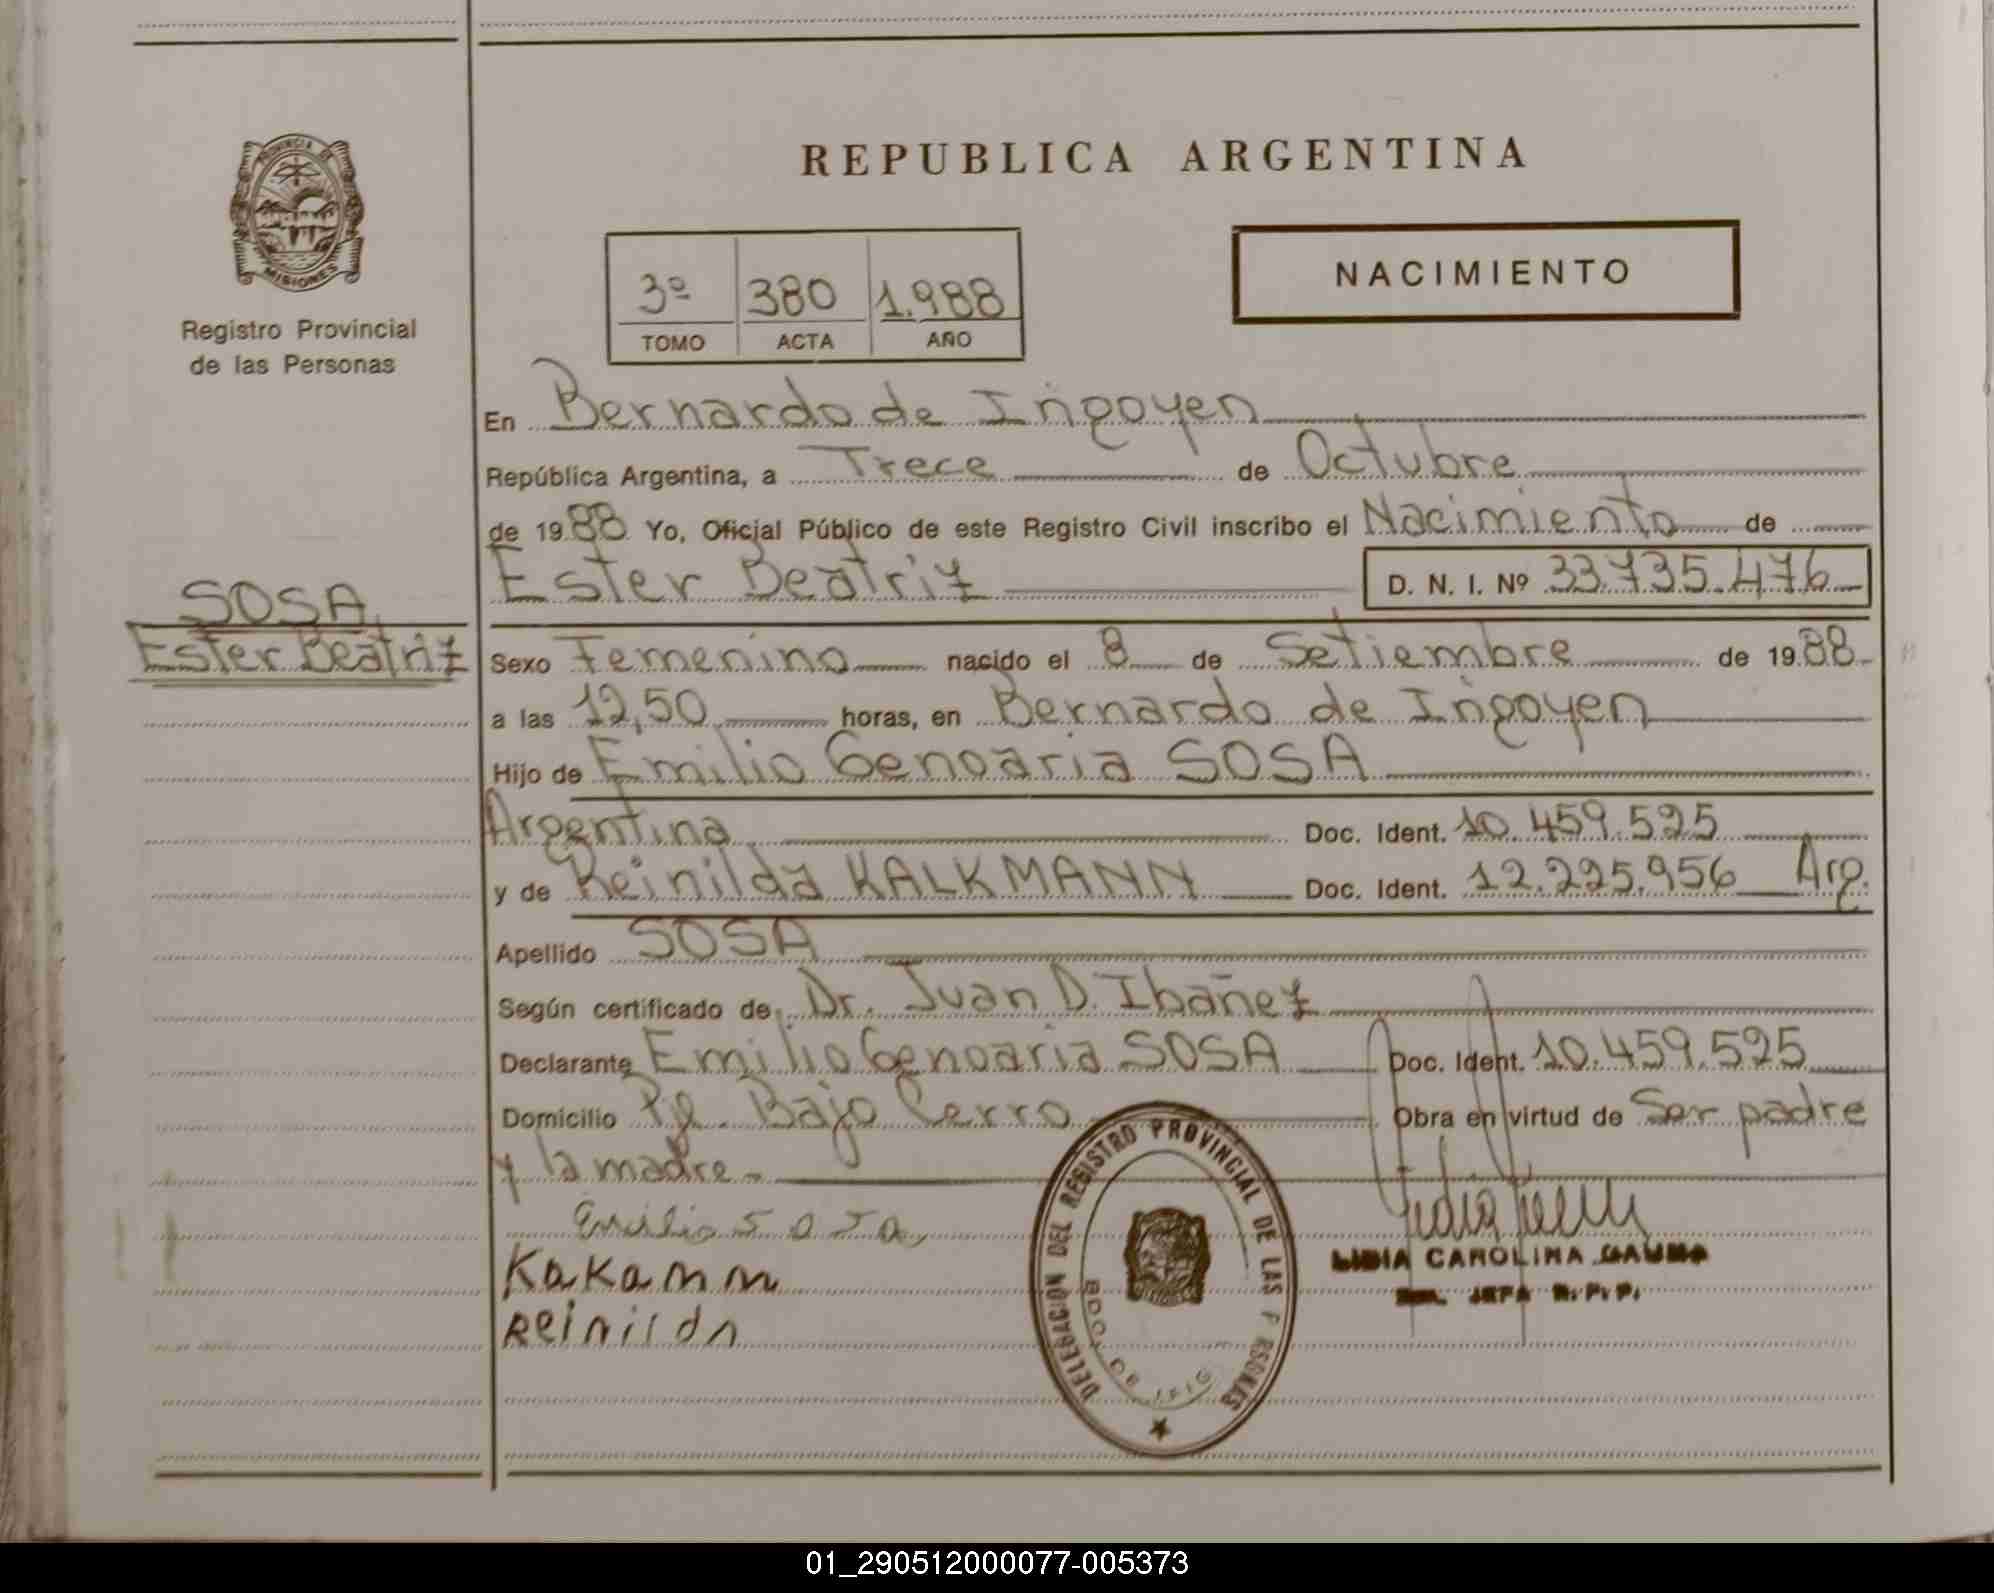 PROVINCIA DE
MISIONES
Registro Provincial
de las Personas
SOSA
Ester Beatriz
REPUBLICA ARGENTINA
3º 380 1.988
TOMO ACTA AÑO
NACIMIENTO
En Bernardo de Irigoyen
República Argentina, a Trece de Octubre
de 1988 Yo, Oficial Público de este Registro Civil inscribo el Nacimiento de
Ester Beatriz D. N. I. Nº 33.735.476
Sexo Femenino nacido el 8 de Setiembre de 1988
a las 12,50 horas, en Bernardo de Irigoyen
Hijo de Emilio Genoaria SOSA
Argentina Doc. Ident. 10.459.525
y de Reinilda KALKMANN Doc. Ident. 12.225.956 Arg.
Apellido SOSA
Según certificado de Dr. Juan D. Ibañez
Declarante Emilio Genoaria SOSA Doc. Ident. 10.459.525
Domicilio Pje. Bajo Cerro Obra en virtud de Ser padre
y la madre
Emilio Sosa
Kakamn
Reinilda
DELEGACION DEL REGISTRO PROVINCIAL DE LAS P RSONAS
BDO. DE IRIG
LIDIA CAROLINA
JEFA R. P. P.
01_290512000077-005373